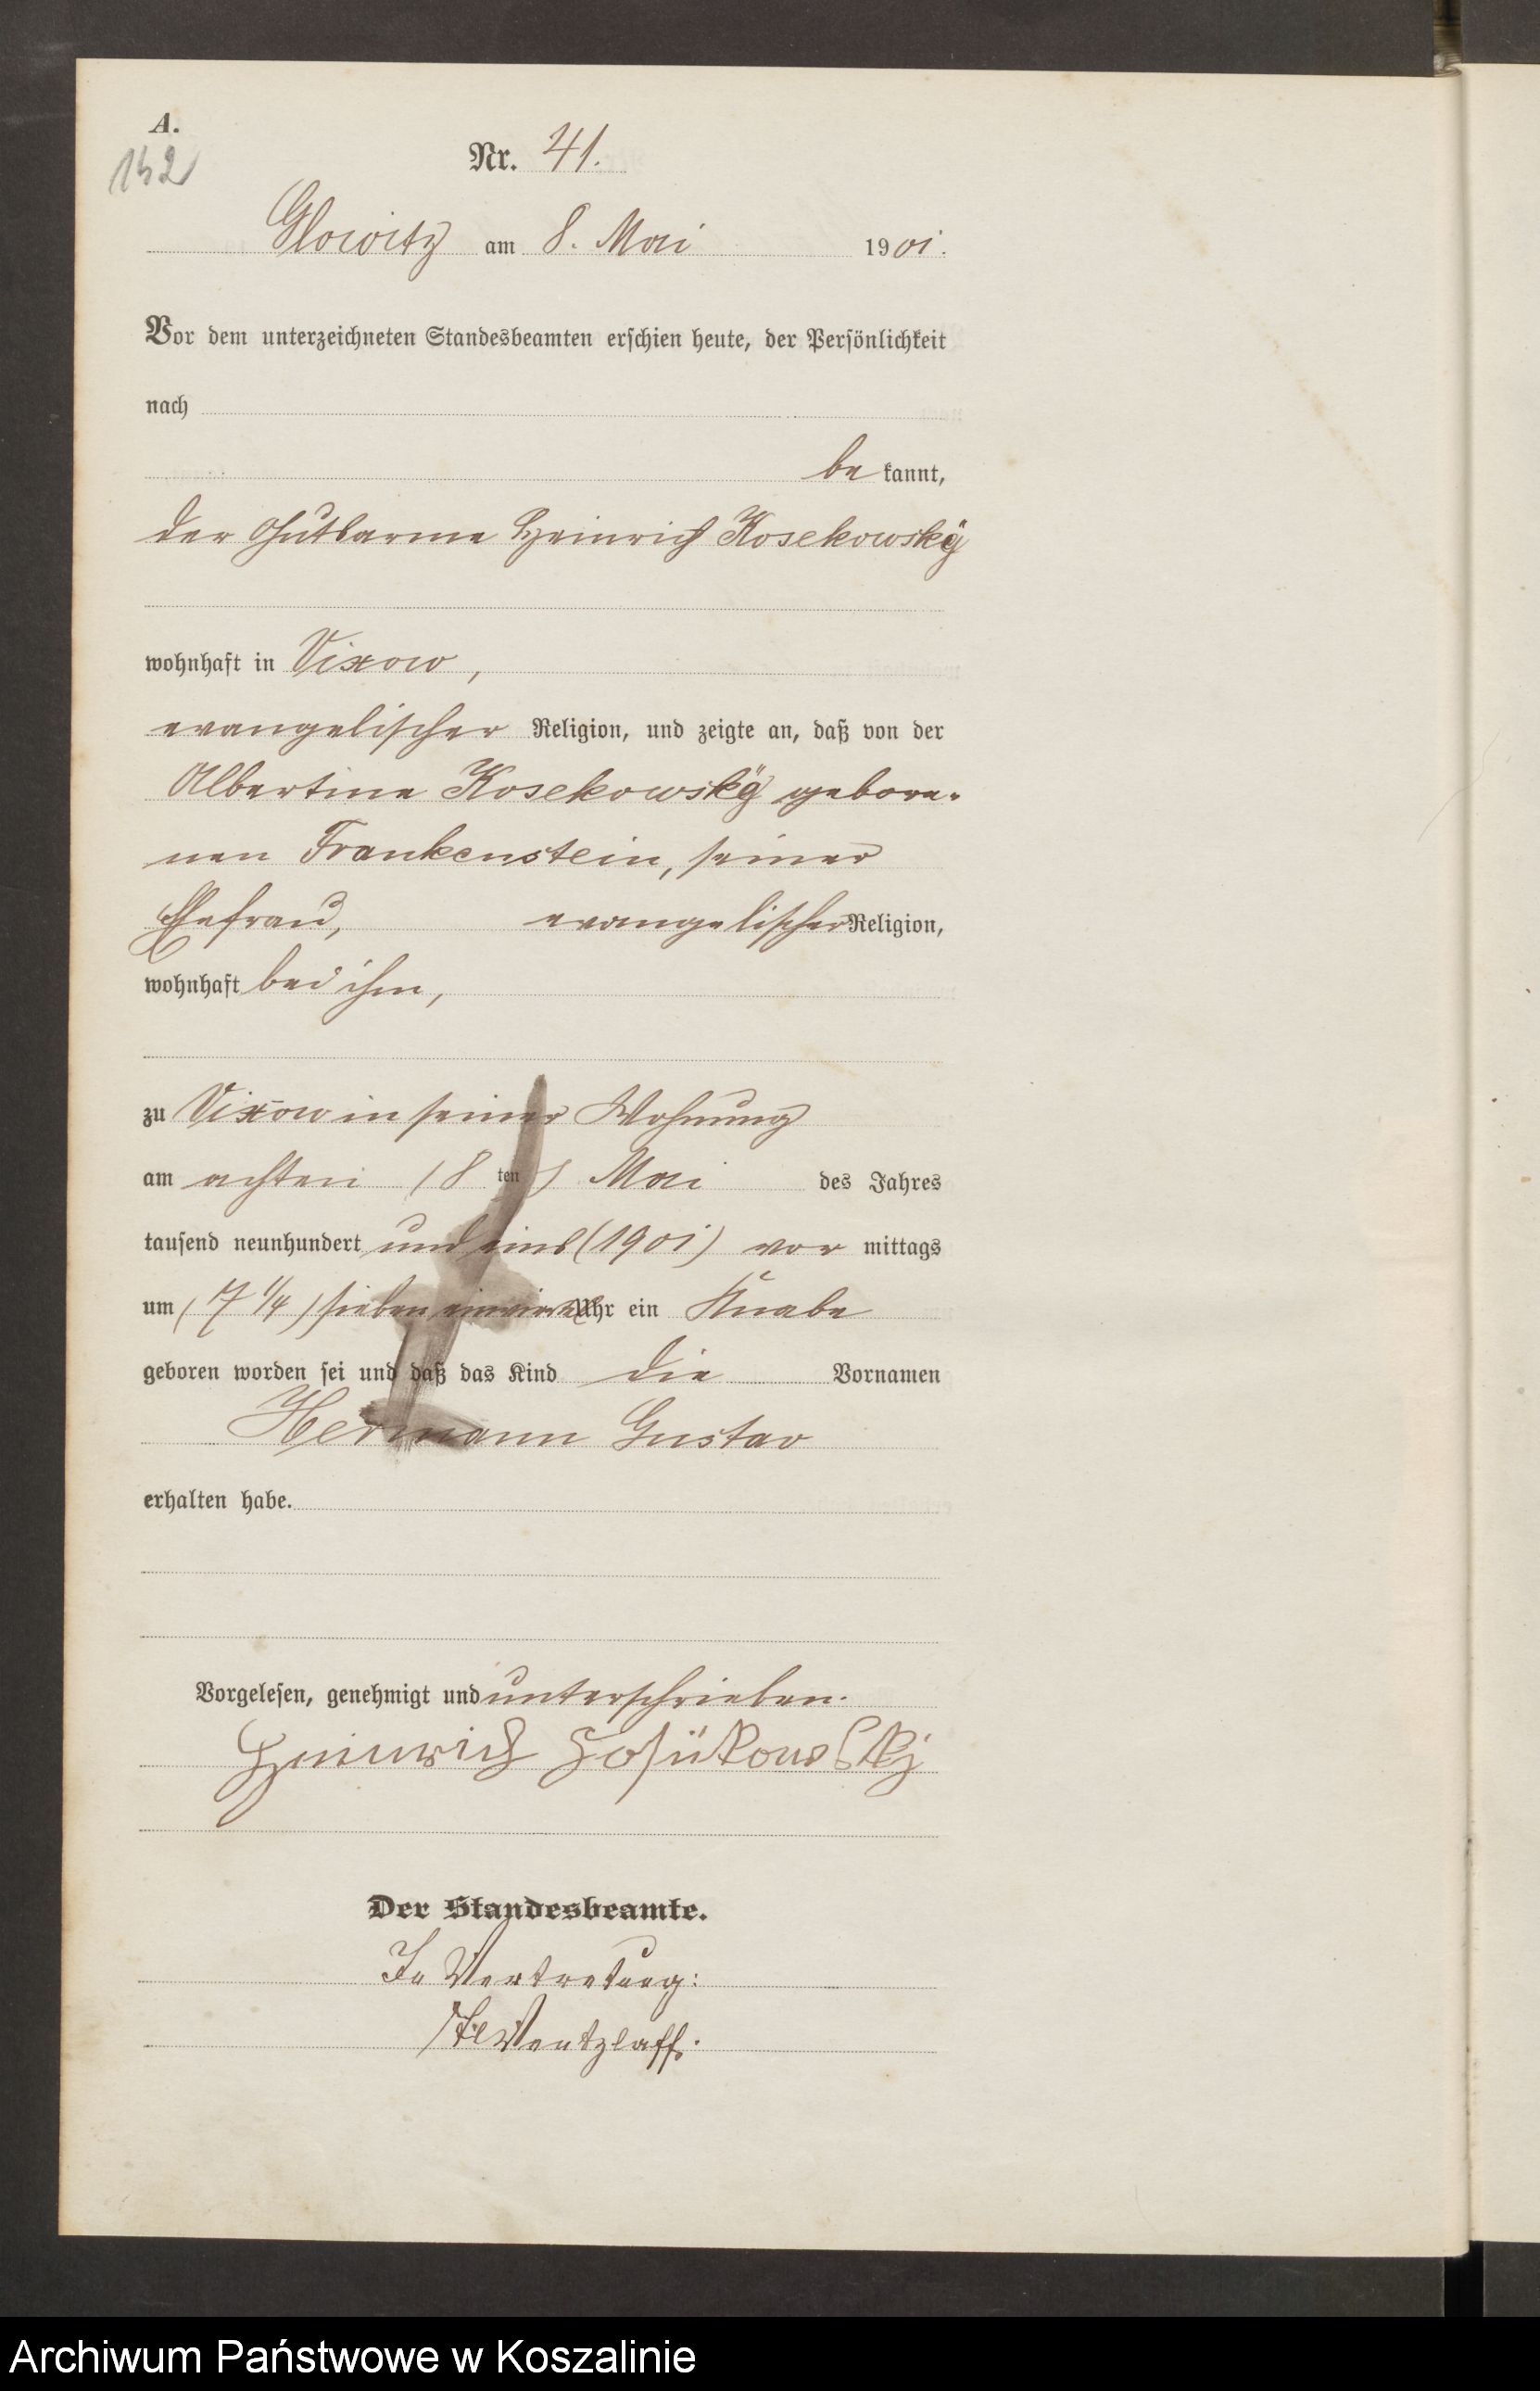 A.
132
Nr. 41.
Glowitz am 8. Mai 1901.
Vor dem unterzeichneten Standesbeamten erschien heute, der Persönlichkeit
nach
be kannt,
der Gutsarme Heinrich Kosekowsky
wohnhaft in Vixow,
evangelischer Religion, und zeigte an, daß von der
Albertine Kosekowsky gebore-
nen Frankenstein, seiner
Ehefrau, evangelischer Religion,
wohnhaft bei ihm,
zu Vixow in seiner Wohnung
am achten (8 ten) Mai des Jahres
tausend neunhundert und eins (1901) vor mittags
um (7 1/4) sieben einviertel Uhr ein Knabe
geboren worden sei und daß das Kind die Vornamen
Hermann Gustav
erhalten habe.
Vorgelesen, genehmigt und unterschrieben.
Heinrich
Der Standesbeamte.
In Vertretung:
Wentzlaff.
Archiwum Państwowe w Koszalinie